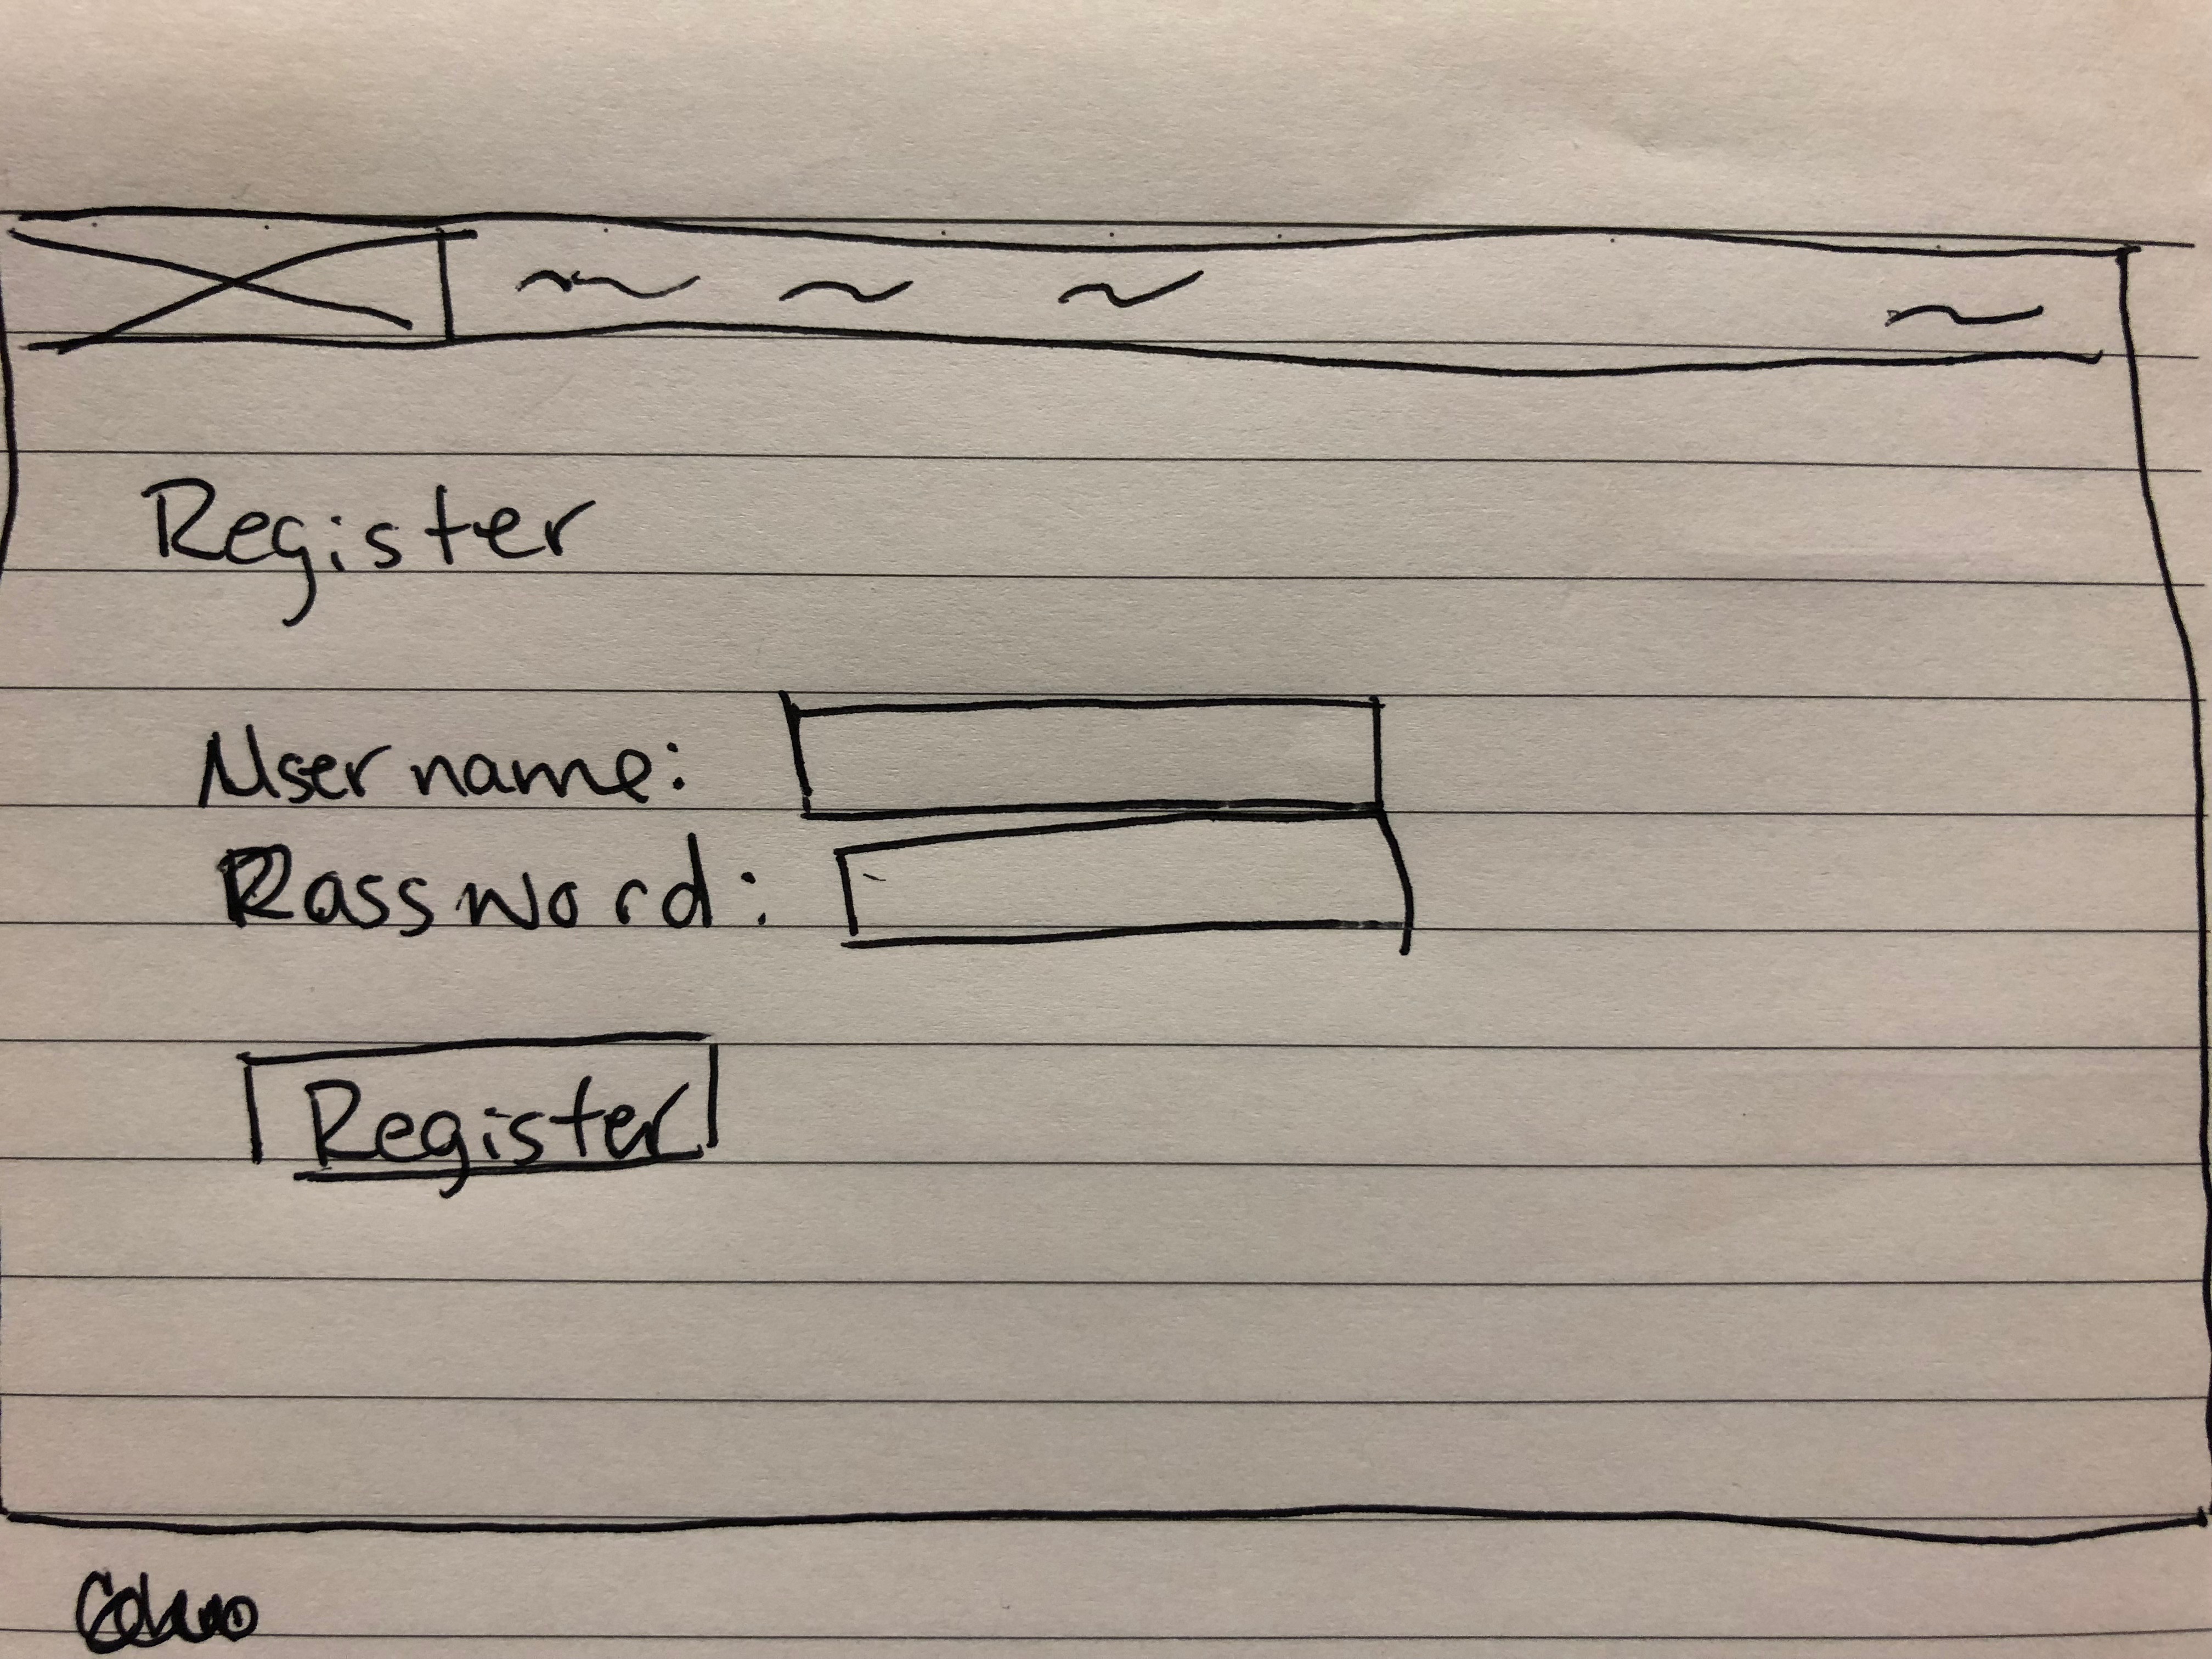 Register
Username:
Password:
Register